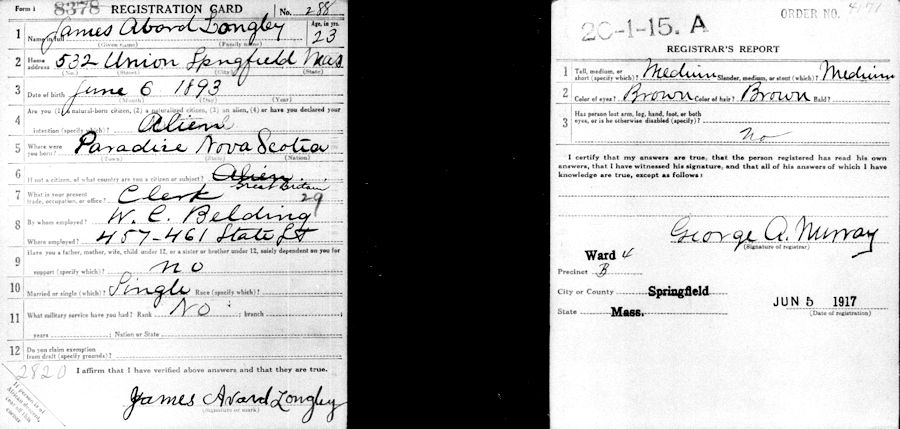 Form 1 8378 REGISTRATION CARD No. 288
1 Name in full James Avard Longley Age, in yrs. 23
(Given name) (Family name)
2 Home address 532 Union Spngfield Mass
(No.) (Street) (City) (State)
3 Date of birth June 6 1893
(Month) (Day) (Year)
4 Are you (1) a natural-born citizen, (2) a naturalized citizen, (3) an alien, (4) or have you declared your
intention (specify which)? Alien
5 Where were you born? Paradise Nova Scotia
(Town) (State) (Nation)
6 If not a citizen, of what country are you a citizen or subject? Alien
Great Britain
7 What is your present trade, occupation, or office? Clerk 29
8 By whom employed? W. C. Belding
Where employed? 457-461 State St
9 Have you a father, mother, wife, child under 12, or a sister or brother under 12, solely dependent on you for
support (specify which)? no
10 Married or single (which)? Single Race (specify which)?
11 What military service have you had? Rank No ; branch
years ; Nation or State
12 Do you claim exemption from draft (specify grounds)?
2820 I affirm that I have verified above answers and that they are true.
If person is of African descent, cut off this corner
James Avard Longley
(Signature or mark)
20-1-15. A ORDER NO.
REGISTRAR'S REPORT
1 Tall, medium, or short (specify which)? Medium Slender, medium, or stout (which)? Medium
2 Color of eyes? Brown Color of hair? Brown Bald?
3 Has person lost arm, leg, hand, foot, or both
eyes, or is he otherwise disabled (specify)?
no
I certify that my answers are true, that the person registered has read his own
answers, that I have witnessed his signature, and that all of his answers of which I have
knowledge are true, except as follows:
George A. Murray
(Signature of registrar)
Ward 4
Precinct B
City or County Springfield
State Mass.
JUN 5 1917
(Date of registration)